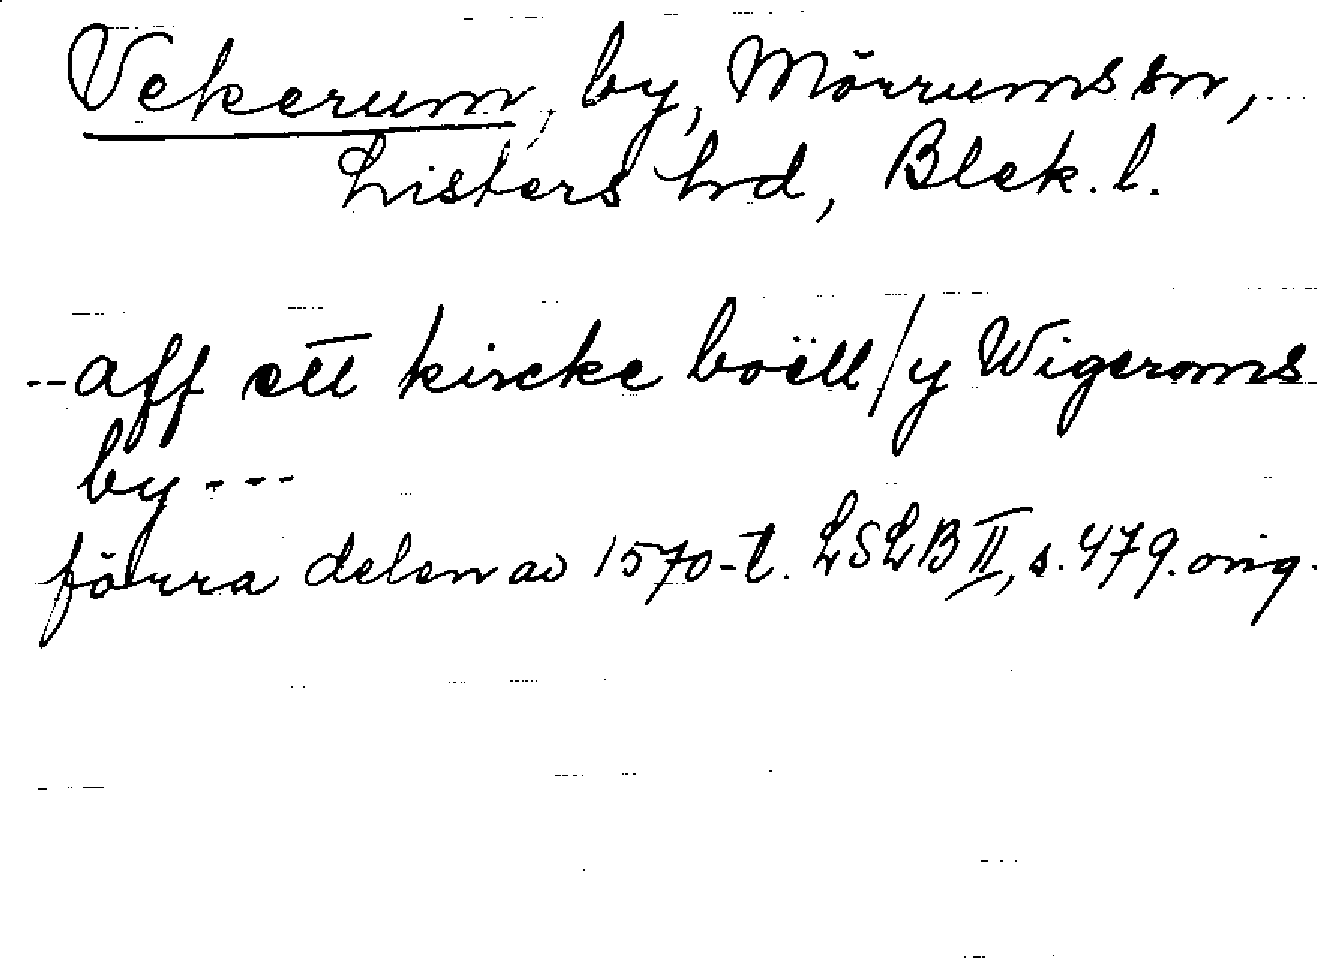 Vekerum, by, Mörrums sn,
Listers hrd, Blek. l.
--aff ett kircke boëll/y Wigeroms
by---
förra delen av 1570-t. LSLB II, s. 479. orig.